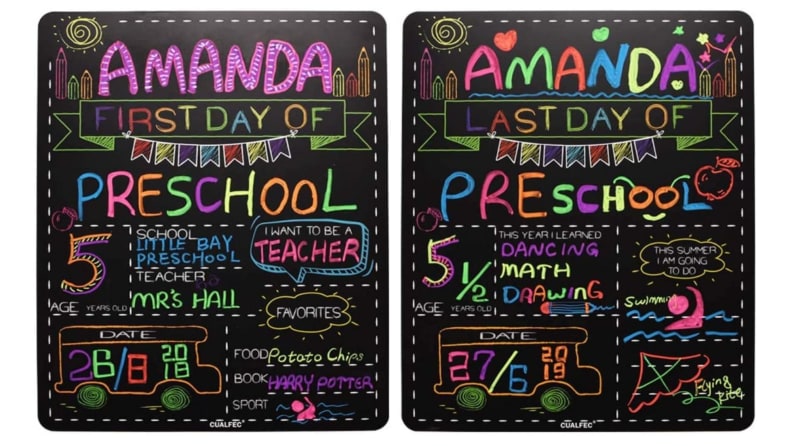 AMANDA
FIRST DAY OF
PRESCHOOL
5
AGE YEARS OLD
SCHOOL
LITTLE BAY
PRESCHOOL
TEACHER
MR'S HALL
I WANT TO BE A
TEACHER
DATE
26/8 2018
FAVORITES
FOOD Potato Chips
BOOK HARRY POTTER
SPORT
CUALFEC
AMANDA
LAST DAY OF
PRESCHOOL
5 1/2
AGE YEARS OLD
THIS YEAR I LEARNED
DANCING
MATH
DRAWING
THIS SUMMER
I AM GOING
TO DO
Swimming
DATE
27/6 2019
Flying
Kites
CUALFEC